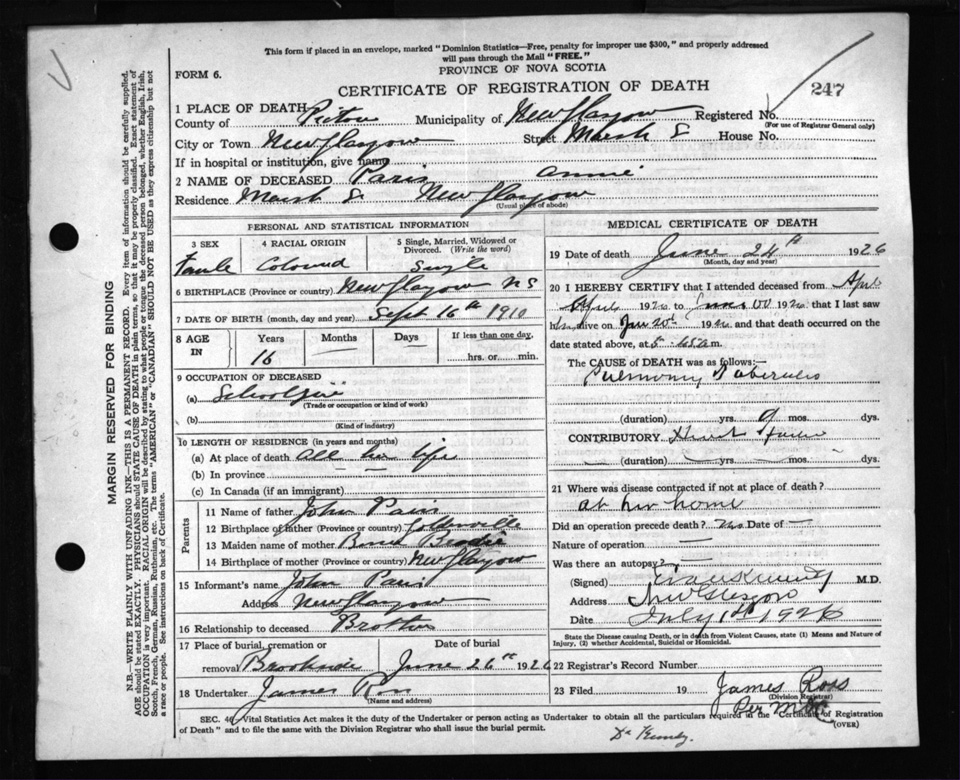 This form if placed in an envelope, marked "Dominion Statistics—Free, penalty for improper use $300," and properly addressed
will pass through the Mail "FREE."
PROVINCE OF NOVA SCOTIA
FORM 6.
CERTIFICATE OF REGISTRATION OF DEATH
247
1 PLACE OF DEATH
County of Pictou Municipality of New Glasgow Registered No.
(For use of Registrar General only)
City or Town New Glasgow Street Marsh St House No.
If in hospital or institution, give name
2 NAME OF DECEASED Paris Annie
Residence Marsh St New Glasgow
(Usual place of abode)
PERSONAL AND STATISTICAL INFORMATION
3 SEX 4 RACIAL ORIGIN 5 Single, Married, Widowed or
Divorced. (Write the word)
Female Colored Single
6 BIRTHPLACE (Province or country) New Glasgow N S
7 DATE OF BIRTH (month, day and year) Sept 16th 1910
8 AGE IN Years Months Days If less than one day,
16 — — ....hrs. or ....min.
9 OCCUPATION OF DECEASED
(a) Schoolgirl
(Trade or occupation or kind of work)
(b)
(Kind of industry)
10 LENGTH OF RESIDENCE (in years and months)
(a) At place of death all her life
(b) In province — —
(c) In Canada (if an immigrant)
Parents
11 Name of father John Paris
12 Birthplace of father (Province or country)
13 Maiden name of mother
14 Birthplace of mother (Province or country) New Glasgow
15 Informant's name John Paris
Address New Glasgow
16 Relationship to deceased Brother
17 Place of burial, cremation or Date of burial
removal Brookside June 26th 1926
18 Undertaker James Ross
(Name and address)
MEDICAL CERTIFICATE OF DEATH
19 Date of death June 24th 1926
(Month, day and year)
20 I HEREBY CERTIFY that I attended deceased from April
April 1926 to June 1926 that I last saw
h alive on 1926 and that death occurred on the
date stated above at m.
The CAUSE of DEATH was as follows:—
Pulmonary Tuberculosis
(duration) yrs. 9 mos. dys.
CONTRIBUTORY Heart failure
— (duration) — yrs. — mos. dys.
21 Where was disease contracted if not at place of death?
at her home
Did an operation precede death? No Date of —
Nature of operation —
Was there an autopsy? —
(Signed) M.D.
Address New Glasgow
Date July 1st 1926
State the Disease causing Death, or in death from Violent Causes, state (1) Means and Nature of
Injury, (2) whether Accidental, Suicidal or Homicidal.
22 Registrar's Record Number
23 Filed 19 James Ross
(Division Registrar)
Per
SEC. 40, Vital Statistics Act makes it the duty of the Undertaker or person acting as Undertaker to obtain all the particulars required in the "Certificate of Registration
of Death" and to file the same with the Division Registrar who shall issue the burial permit.
(OVER)
MARGIN RESERVED FOR BINDING
N.B.—WRITE PLAINLY WITH UNFADING INK—THIS IS A PERMANENT RECORD. Every item of information should be carefully supplied.
AGE should be stated EXACTLY. PHYSICIANS should STATE CAUSE OF DEATH in plain terms, so that it may be properly classified. Exact statement of
OCCUPATION is very important. RACIAL ORIGIN will be described by stating to what people or tongue the deceased person belonged, whether English, Irish,
Scotch, French, German, Russian, Ruthenian, etc. The terms "AMERICAN" or "CANADIAN" SHOULD NOT BE USED as they express citizenship but not
a race or people. See instructions on back of Certificate.